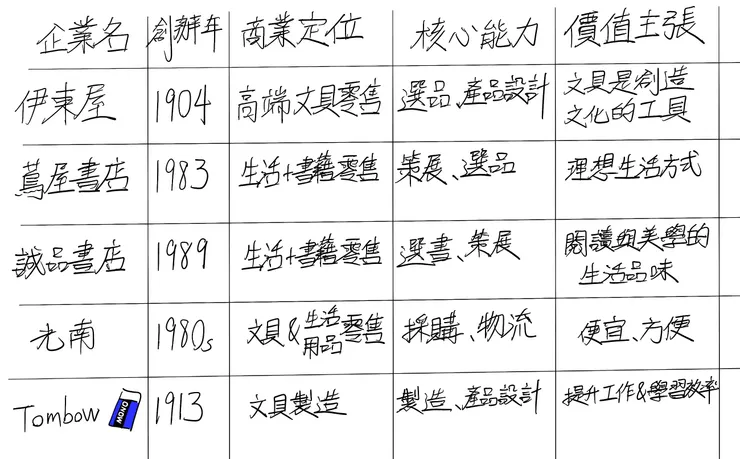 企業名 創辦年 商業定位 核心能力 價值主張
伊東屋 1904 高端文具零售 選品、產品設計 文具是創造
文化的工具
蔦屋書店 1983 生活+書籍零售 策展、選品 理想生活方式
誠品書店 1989 生活+書籍零售 選書、策展 閱讀與美學的
生活品味
光南 1980s 文具&生活用品零售 採購、物流 便宜、方便
Tombow MONO 1913 文具製造 製造、產品設計 提升工作&學習效率